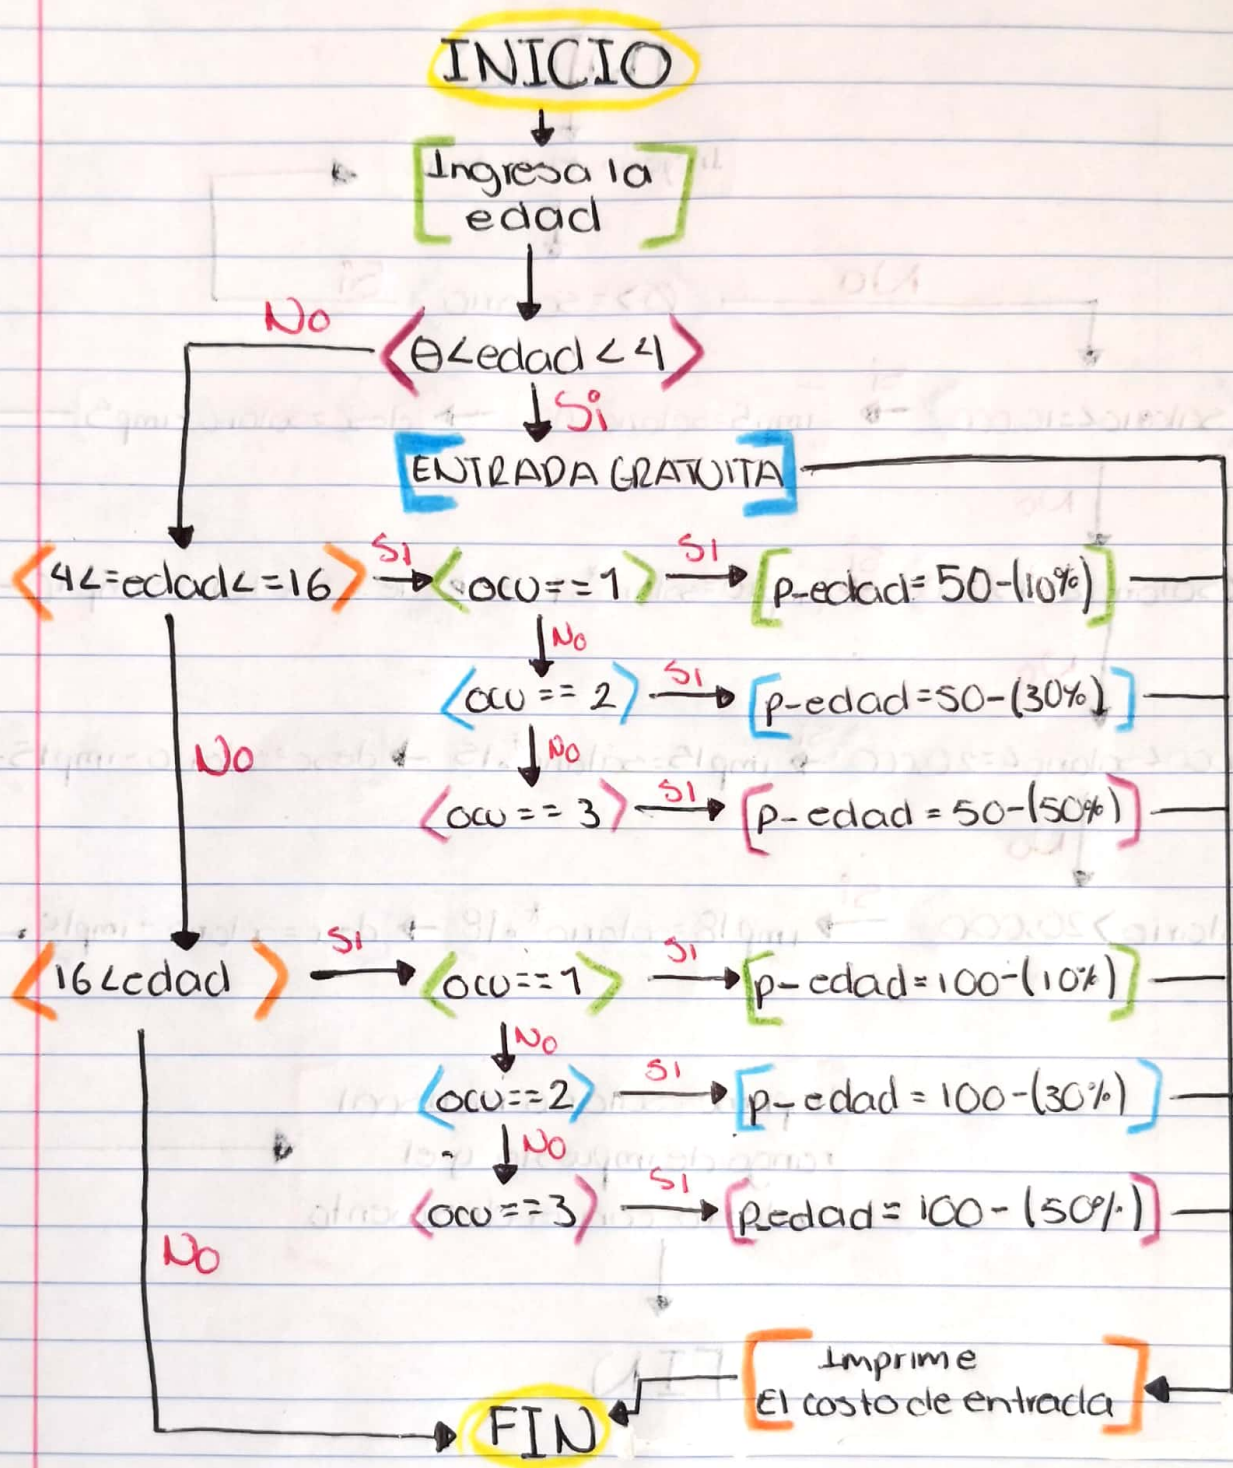 INICIO
Ingresa la
edad
No
0<edad<4
Si
ENTRADA GRATUITA
4<=edad<=16
SI
ocu==1
SI
p-edad=50-(10%)
No
ocu==2
SI
p-edad=50-(30%)
No
No
ocu==3
SI
p-edad=50-(50%)
16<edad
SI
ocu==1
SI
p-edad=100-(10%)
No
ocu==2
SI
p-edad=100-(30%)
No
ocu==3
SI
p-edad=100-(50%)
No
Imprime
El costo de entrada
FIN